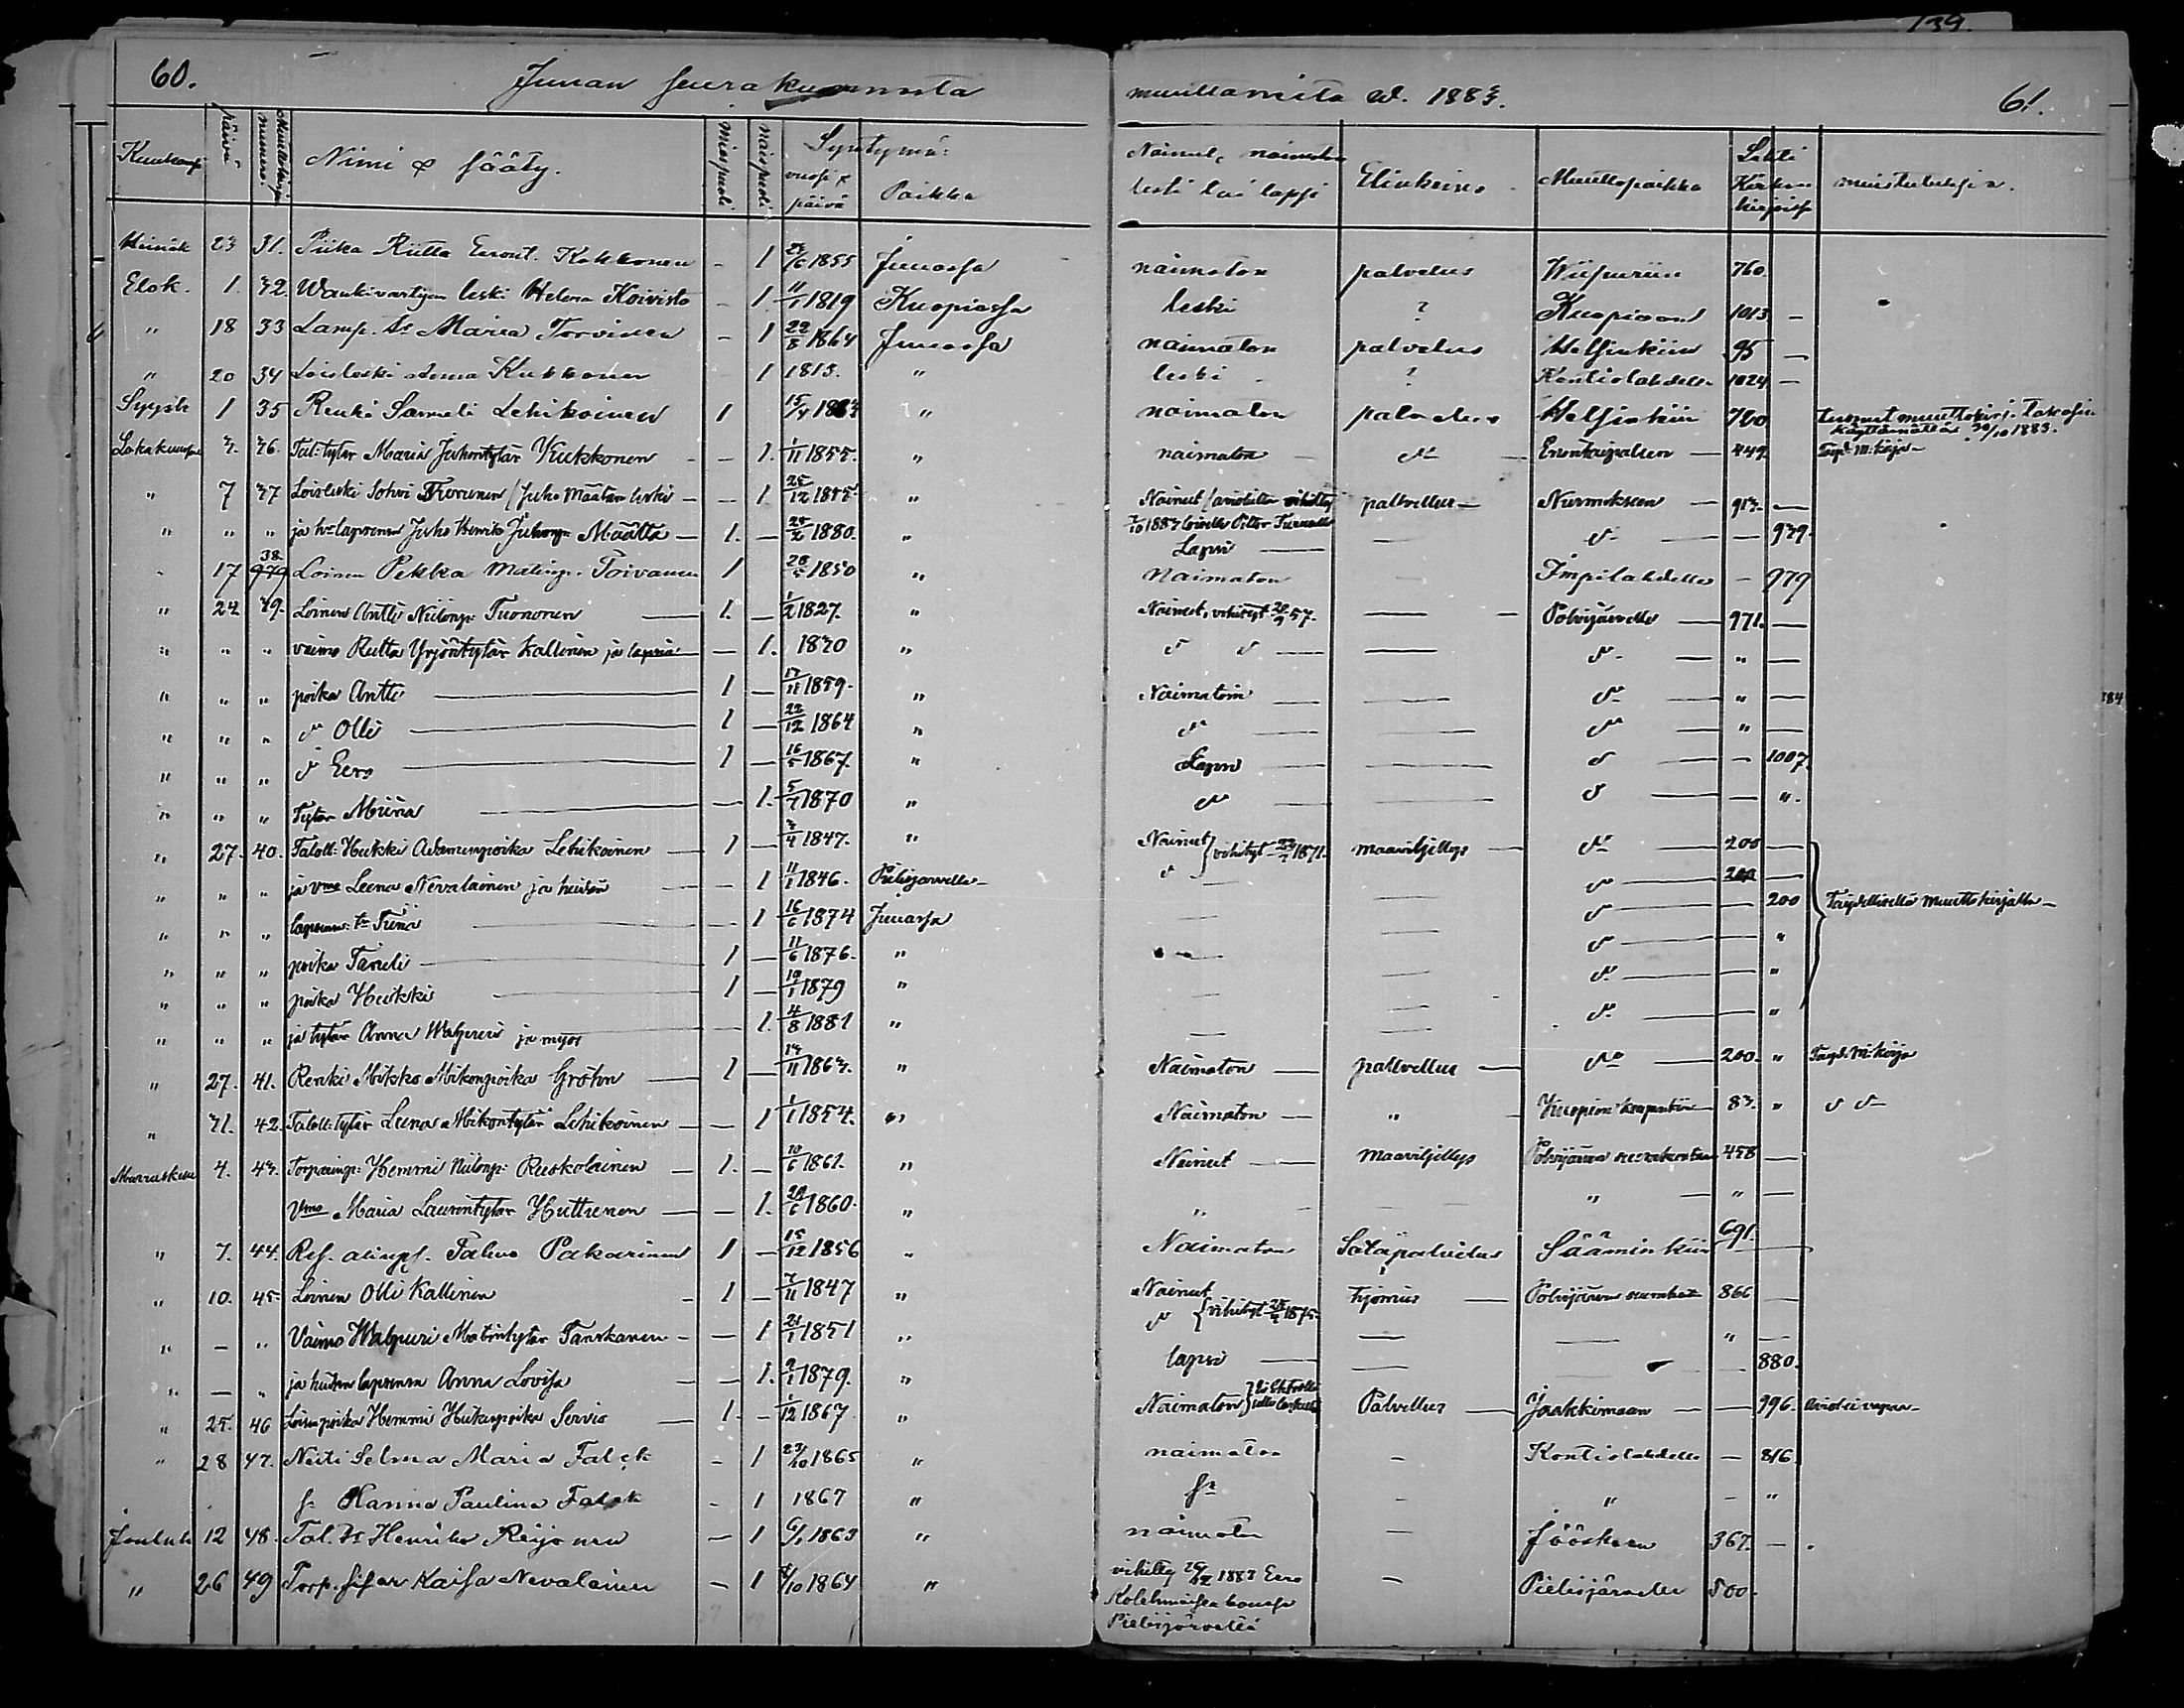 139.
60. Juuan seurakunnasta muuttaneita w. 1883. 61.
Kuukausi päivä Muuttokirja numero. Nimi & sääty. miespuoli. naispuoli. Syntymä: vuosi & päivä Paikka Nainut, naimaton leski tai lapsi Elinkeino Muuttopaikka Lehti Kirkon kirjoissa muistutuksia.
Heinäk 23 31. Piika Riitta Eeront. Kokkonen - 1 23/6 1855 Juuassa naimaton palvelus Wiipuriin 760.
Elok. 1. 32. Wankivartijan leski Helena Koivisto - 1 11/1 1819 Kuopiossa leski ? Kuopioon 1013 -
" 18 33 Lamp. tr Maria Torvinen - 1 22/8 1864 Juuassa naimaton palvelus Helsinkiin 95 -
" 20 34 Loisleski Anna Kukkonen 1 1813. " leski - ? Kontiolahdelle 1024 -
Syysk 1 35 Renki Sameli Lehikoinen 1 15/4 18 " naimaton palvelus Helsinkiin 760 tuonut muuttokirj. takasin käyttämättä 30/10 1883.
Lokakuussa 3. 36. Tal: tytär Maria Juhontytär Kukkonen - - 1. 1/11 1855. " naimaton - d:o Enontaipaleen - 449. Täyd. m: kirja -
" 7 37 Loisleski Sohvi Turunen (Juho Määtän leski - - 1 25/12 1855. " Nainut / aviolitto vihitty palvellus - Nurmekseen - 913. -
" " " ja h:n lapsensa Juho Henrik Juhonp. Määttä - 1. - 25/2 1880. " 7/10 1883 loiselle Petter Turuselle
Lapsi - - d:o - - 939.
" 17 38. 979 Loinen Pekka Matinp. Toivanen 1 28/5 1850 " Naimaton - Impilahdelle - 979
" 24 39. Loinen Antti Niilonp: Tuononen - 1. - 1/2 1827. " Nainut, vihityt 20/9 57. - - Polvijärvelle - 971. -
" " " vaimo Riitta Yrjöntytär Kallinen ja lapsia - - 1. 1830 " d d - - d:o - " -
" " " poika Antti - 1 - 17/11 1859. " Naimatoin - - d:o - " -
" " " d:o Olli - 1 - 22/12 1864 " d:o - - d:o - " -
" " " d Eero - 1 - 16/5 1867. " Lapsi - - d - - 1007.
" " " Tytär Miina - - 1. 5/7 1870 " d:o - - d - - ".
" 27. 40. Taloll: Heikki Adaminpoika Lehikoinen - 1 - 3/4 1847. " Nainut } vihityt 23/7 1871. maaviljellys - d:o - 200 -
" " " ja vmo Leena Nevalainen ja heidän - - 1 11/1 1846. Pielisjärvellä - d - - d:o - 200 -
" " " lapsensa: tr Tiina - - 1 16/6 1874 Juuassa - - d:o - - 200 Täydellisellä muuttokirjalla -
" " " poika Taneli - 1 - 11/6 1876. " - - d:o - - "
" " " poika Heikki - 1 - 19/1 1879 " - - d:o - - "
" " " ja tytär Anna Walpuri ja myös - - 1. 4/8 1881 " - - d:o - - "
" 27. 41. Renki Mikko Mikonpoika Gröhn - 1 - 13/11 1863. " Naimaton - palvellus - d:o - 200. " Täyd. m: kirja
" 31. 42. Taloll: tytär Leena Mikontytär Lehikoinen - - 1 1/1 1854. " Naimaton - " - Kuopion kaupunkiin - 83. " d d:o
Marraskuu 4. 43. Torparinp: Hemmi Niilonp: Ruskolainen - 1. - 10/6 1861. " Nainut - maaviljellys Polvijärven seurakuntaan 458 -
Vmo Maria Laurintytär Huttunen - - 1. 29/6 1860. " " - - " - " -
" 7. 44. Res. aliups. Tahvo Pakarinen 1 - 15/12 1856 " Naimaton Sotapalvelus Sääminkiin 691. -
" 10. 45. Loinen Olli Kallinen - 1 - 7/11 1847 " Nainut työmies - Polvijärven seurakun 866 -
" - " Vaimo Walpuri Matintytär Tanskanen - - 1 21/1 1851 " d:o { vihityt 25/4 1875. - - " -
" - " ja heidän lapsensa Anna Lovisa - - 1. 2/1 1879. " lapsi - - - 880.
" 25. 46 Loisen poika Hemmi Heikinpoika Servio - 1. - 1/12 1867. " Naimaton Palvellus - Jaakkimaan - - 996. avioliivapaa -
" 28 47. Neiti Selma Maria Falck - 1 23/10 1865 " naimaton - Kontiolahdelle - 816.
s:n Hanna Paulina Falck - 1 1867 " s:n - " - "
Jouluk 12 48. Tal. tr Henrika Reijonen - 1 6/1 1863 " naimaton - Jääskeen 367. - .
" 26 49 Torp. sisar Kaisa Nevalainen - 1 8/10 1864 " vihitty 26/12 1883 Eero - Pielisjärvelle 500.
Kolehmaisen kanssa
Pielisjärvellä